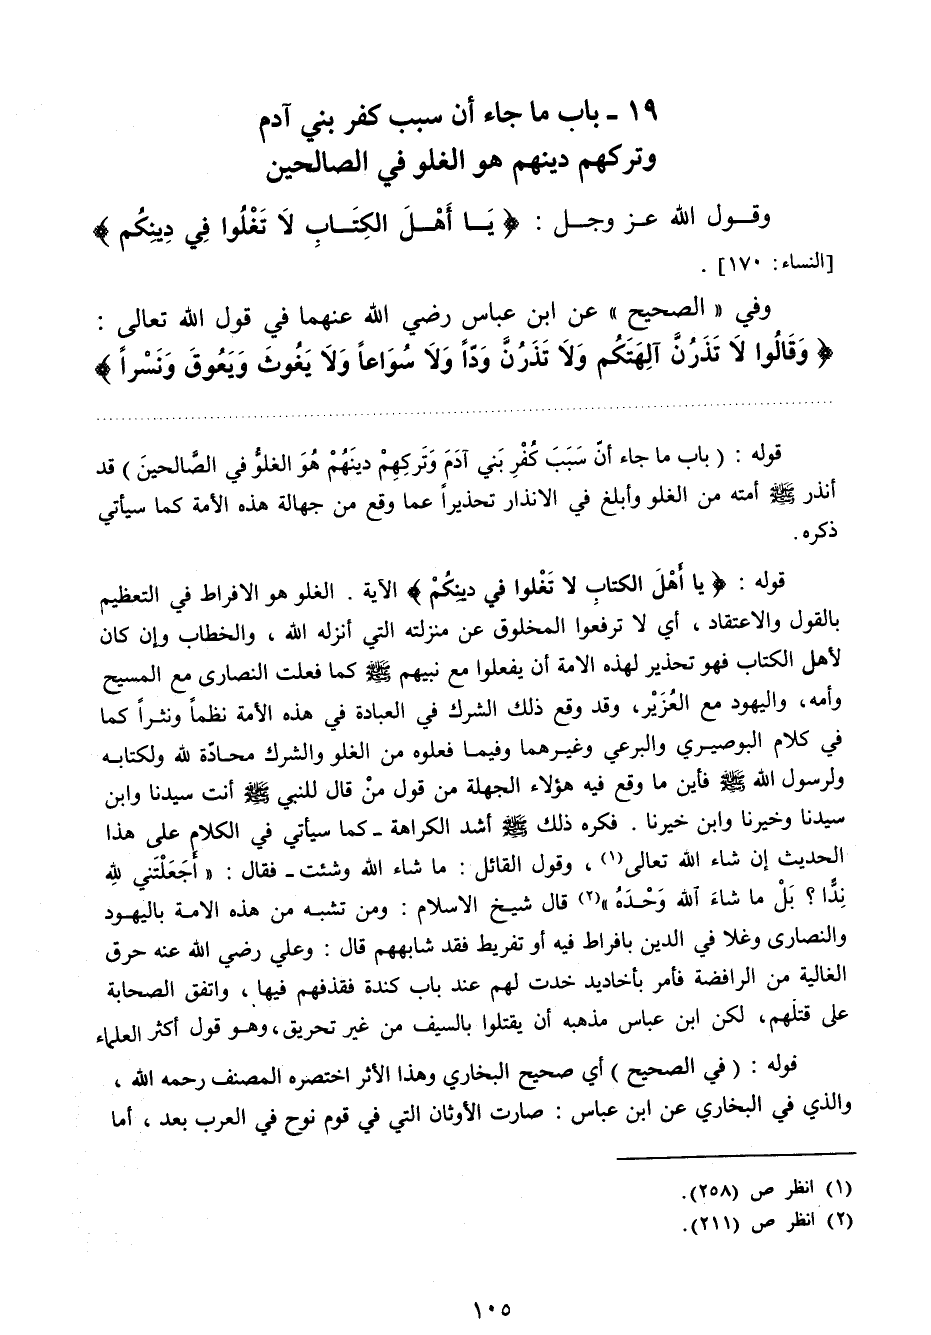 ١٩ ـ باب ما جاء أن سبب كفر بني آدم
وتركهم دينهم هو الغلو في الصالحين
وقول الله عز وجل : ﴿ يَا أَهْلَ الكِتَابِ لَا تَغْلُوا فِي دِينِكُم ﴾
[النساء: ١٧٠] .
وفي « الصحيح » عن ابن عباس رضي الله عنهما في قول الله تعالى :
﴿ وَقَالُوا لَا تَذَرُنَّ آلِهَتَكُم وَلَا تَذَرُنَّ وَدّاً وَلَا سُوَاعاً وَلَا يَغُوثَ وَيَعُوقَ وَنَسْراً ﴾
قوله : ( باب ما جاء أنّ سَبَبَ كُفْرِ بَني آدَمَ وَتَركِهِمْ دينَهُمْ هُوَ الغلوُّ في الصَّالحينَ ) قد
أنذر ﷺ أمته من الغلو وأبلغ في الانذار تحذيراً عما وقع من جهالة هذه الأمة كما سيأتي
ذكره .
قوله : ﴿ يا أَهْلَ الكتابِ لا تَغْلوا في دينِكُمْ ﴾ الآية . الغلو هو الافراط في التعظيم
بالقول والاعتقاد ، أي لا ترفعوا المخلوق عن منزلته التي أنزله الله ، والخطاب وإن كان
لأهل الكتاب فهو تحذير لهذه الامة أن يفعلوا مع نبيهم ﷺ كما فعلت النصارى مع المسيح
وأمه، واليهود مع العُزَيْر، وقد وقع ذلك الشرك في العبادة في هذه الأمة نظماً ونثراً كما
في كلام البوصيري والبرعي وغيرهما وفيما فعلوه من الغلو والشرك محادّة لله ولكتابه
ولرسول الله ﷺ فأين ما وقع فيه هؤلاء الجهلة من قول منْ قال للنبي ﷺ أنت سيدنا وابن
سيدنا وخيرنا وابن خيرنا . فكره ذلك ﷺ أشد الكراهة ـ كما سيأتي في الكلام على هذا
الحديث إن شاء الله تعالى(١) ، وقول القائل : ما شاء الله وشئت ـ فقال : « أَجَعَلْتَني لله
نِدًّا ؟ بَلْ ما شاءَ ٱلله وَحْدَهُ »(٢) قال شيخ الاسلام : ومن تشبه من هذه الامة باليهود
والنصارى وغلا في الدين بافراط فيه أو تفريط فقد شابههم قال : وعلي رضي الله عنه حرق
الغالية من الرافضة فأمر بأخاديد خدت لهم عند باب كندة فقذفهم فيها ، واتفق الصحابة
على قتلهم، لكن ابن عباس مذهبه أن يقتلوا بالسيف من غير تحريق، وهو قول أكثر العلماء
قوله : ( في الصحيح ) أي صحيح البخاري وهذا الأثر اختصره المصنف رحمه الله ،
والذي في البخاري عن ابن عباس : صارت الأوثان التي في قوم نوح في العرب بعد ، أما
(١) انظر ص (٢٥٨).
(٢) انظر ص (٢١١).
١٠٥